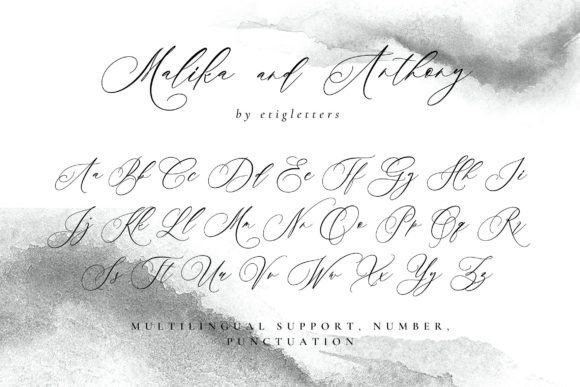 Malika and Anthony
by etigletters
Aa Bb Cc Dd Ee Ff Gg Hh Ii
Jj Kk Ll Mm Nn Oo Pp Qq Rr
Ss Tt Uu Vv Ww Xx Yy Zz
MULTILINGUAL SUPPORT, NUMBER,
PUNCTUATION